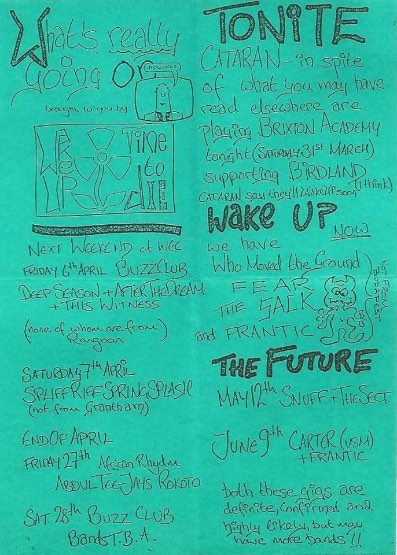 What's really
going On
brought to you by
Time
to
NEXT WEEKEND at WEC
FRIDAY 6th APRIL BUZZ CLUB
DEEP SEASON + AFTER THE DREAM
+ THIS WITNESS
(none of whom are from
Rangoon)
SATURDAY 7th April
SPLIFF RIFF SPRING SPLASH
(not from Grantham)
END OF APRIL
FRIDAY 27th African Rhythm
ABDUL TEE JAYS ROKOTO
SAT 28th BUZZ CLUB
Bands T.B.A.
TONITE
CATARAN - in spite
of what you may have
read elsewhere are
playing BRIXTON ACADEMY
tonight (SATURDAY 31st MARCH)
supporting BIRDLAND
(I think)
CATARAN say they'll
soon
WAKE UP
NOW
we have
Who Moved the Ground
FEAR
THE SACK
and FRANTIC
THE FUTURE
MAY 12th SNUFF + THE SECT
JUNE 9th CARTER (USM)
+ FRANTIC
both these gigs are
definite, confirmed and
highly likely, but may
have more bands!!